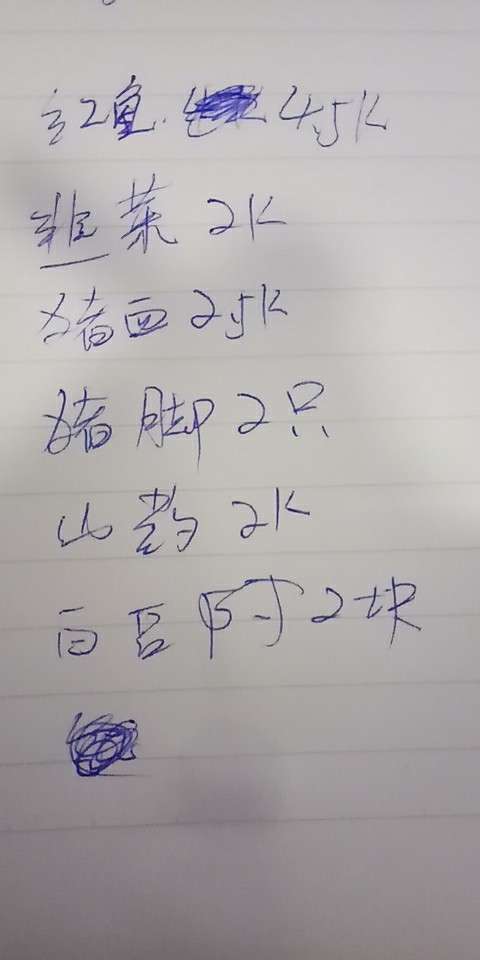 红鱼 4.5K
韭菜 2K
猪血 2.5K
猪脚 2只
山药 2K
白豆付 2块